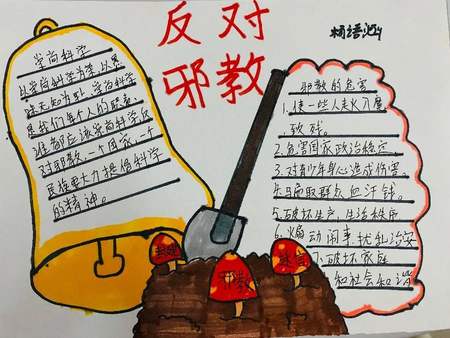 反对
邪教
崇尚科学
以崇尚科学为荣,以愚
昧无知为耻,崇尚科学
是我们每个人的职责,
谁都应该崇尚科学反
对邪教,一个国家,一个
民族要大力提倡科学
的精神。
邪教的危害
1.使一些人走火入魔
致残。
2.危害国家政治稳定
3.对青少年身心造成伤害。
4.骗取群众血汗钱。
5.破坏生产、生活秩序
6.煽动闹事,扰乱治安
破坏家庭
和社会和谐
邪教